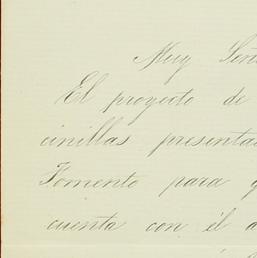 Muy Señ
El proyecto de
cinillas presenta
Fomento para q
cuenta con él a